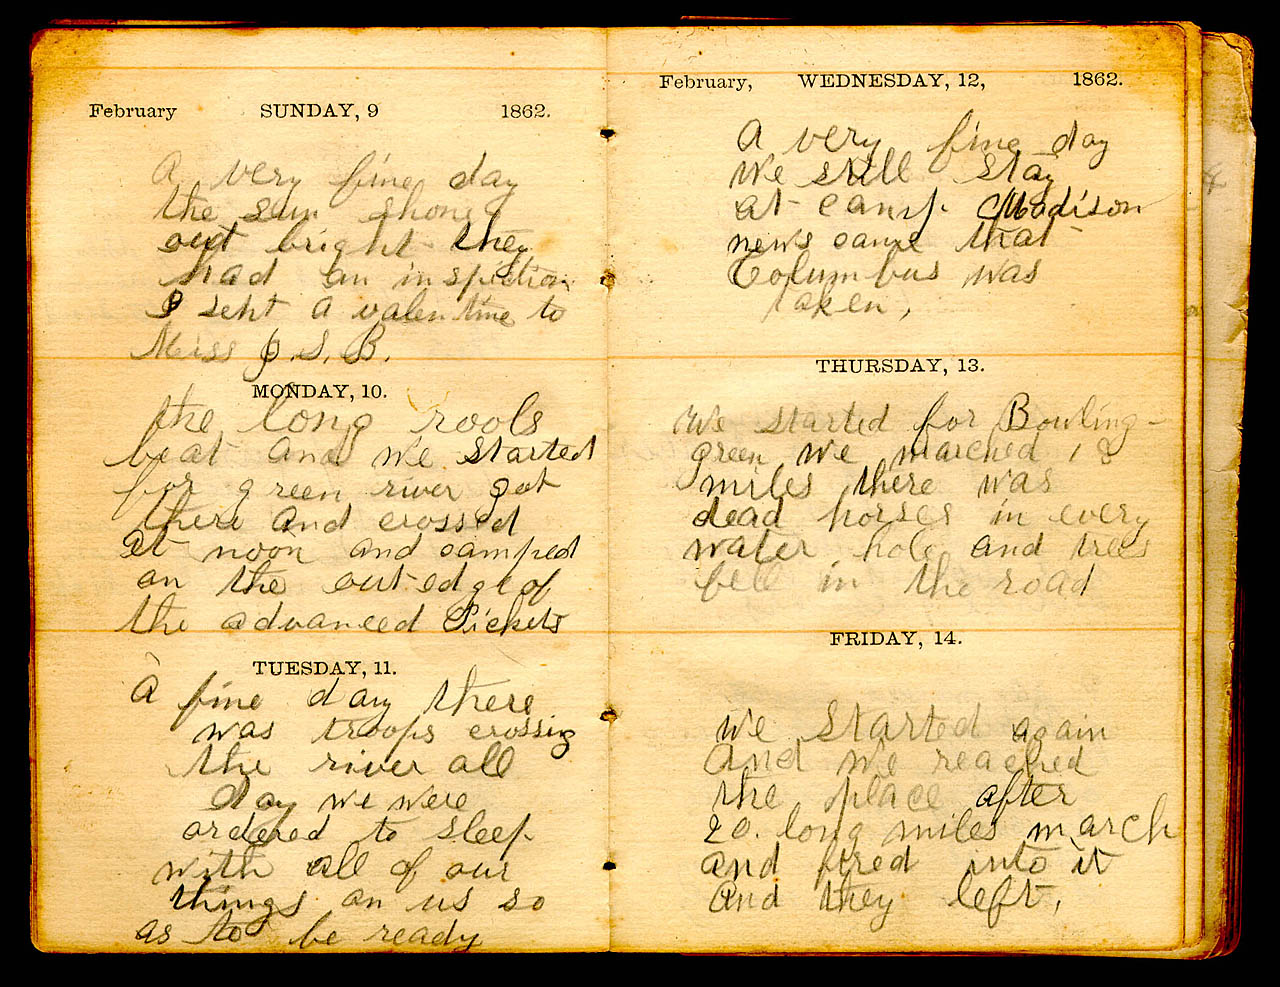 February SUNDAY, 9 1862.
A very fine day
the sun shone
out bright they
had an inspection
I sent a valentine to
Miss J. S. B.
MONDAY, 10.
the long rools
beat and we started
for green river got
there and crossed
at noon and camped
on the out edge of
the advanced Pickets
TUESDAY, 11.
A fine day there
was troops crossing
the river all
day we were
ordered to sleep
with all of our
things on us so
as to be ready
February, WEDNESDAY, 12, 1862.
A very fine day
we still stay
at camp Madison
news came that
Columbus was
taken,
THURSDAY, 13.
We started for Bowling-
green we marched 18
miles there was
dead horses in every
water hole and trees
fell in the road
FRIDAY, 14.
We started again
and we reached
the place after
20. long miles march
and fired into it
and they left,